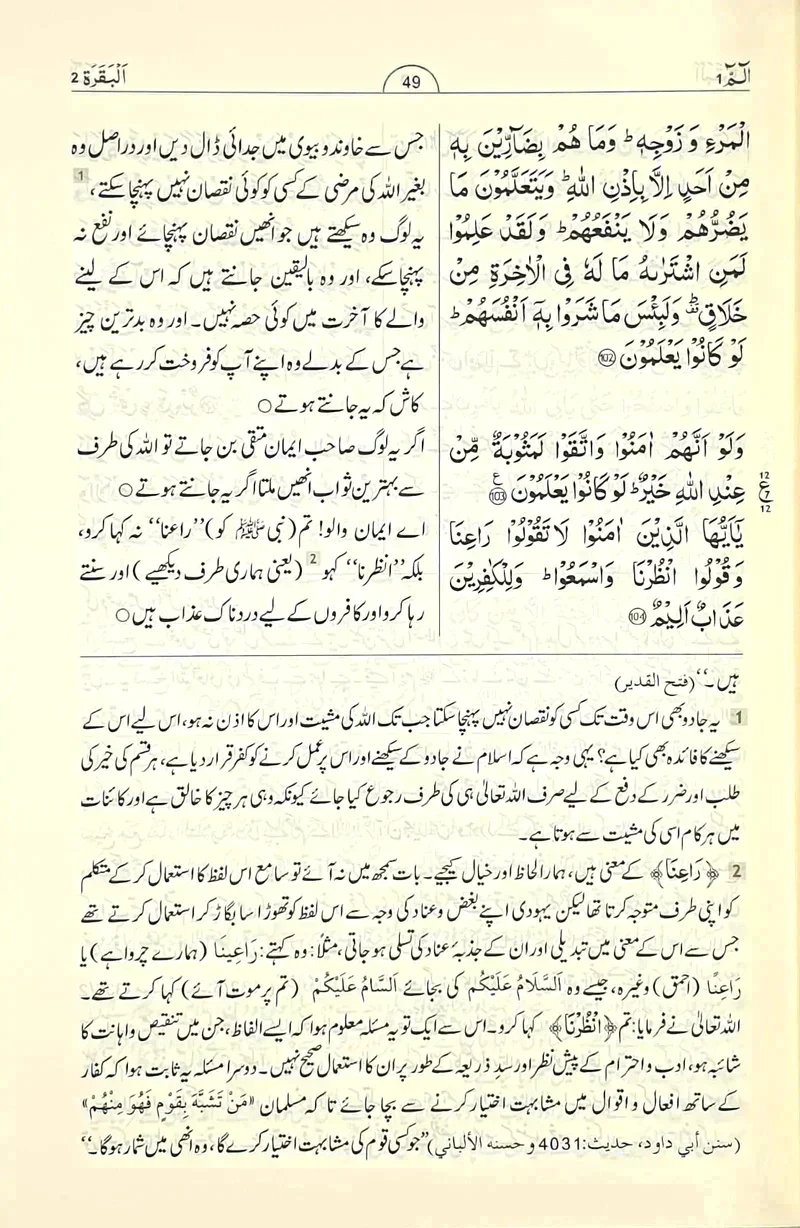 الٓمّٓ 1
49
اَلْبَقَرَة 2
الْمَرْءِ وَ زَوْجِهٖ ؕ وَمَا هُمْ بِضَآرِّيْنَ بِهٖ
مِنْ اَحَدٍ اِلَّا بِاِذْنِ اللّٰهِ ؕ وَيَتَعَلَّمُوْنَ مَا
يَضُرُّهُمْ وَلَا يَنْفَعُهُمْ ؕ وَلَقَدْ عَلِمُوْا
لَمَنِ اشْتَرٰىهُ مَا لَهٗ فِى الْاٰخِرَةِ مِنْ
خَلَاقٍ ۛؕ وَلَبِئْسَ مَا شَرَوْا بِهٖٓ اَنْفُسَهُمْ ؕ
لَوْ كَانُوْا يَعْلَمُوْنَ 102
وَلَوْ اَنَّهُمْ اٰمَنُوْا وَاتَّقَوْا لَمَثُوْبَةٌ مِّنْ
عِنْدِ اللّٰهِ خَيْرٌ ؕ لَوْ كَانُوْا يَعْلَمُوْنَ 103 ع
12 ع 7 12
يٰٓاَيُّهَا الَّذِيْنَ اٰمَنُوْا لَا تَقُوْلُوْا رَاعِنَا
وَقُوْلُوا انْظُرْنَا وَاسْمَعُوْا ؕ وَلِلْكٰفِرِيْنَ
عَذَابٌ اَلِيْمٌ 104
جس سے خاوند و بیوی میں جدائی ڈال دیں اور دراصل وہ
بغیر اللہ کی مرضی کے کسی کو کوئی نقصان نہیں پہنچا سکتے، 1
یہ لوگ وہ سیکھتے ہیں جو انھیں نقصان پہنچائے اور نفع نہ
پہنچا سکے، اور وہ بالیقین جانتے ہیں کہ اس کے لینے
والے کا آخرت میں کوئی حصہ نہیں۔ اور وہ بدترین چیز
ہے جس کے بدلے وہ اپنے آپ کو فروخت کر رہے ہیں،
کاش کہ یہ جانتے ہوتے ○
اگر یہ لوگ صاحب ایمان متقی بن جاتے تو اللہ کی طرف
سے بہترین ثواب انھیں ملتا اگر یہ جانتے ہوتے ○
اے ایمان والو! تم (نبی ﷺ کو) ’’راعنا‘‘ نہ کہا کرو،
بلکہ ’’انظرنا‘‘ کہو 2 (یعنی ہماری طرف دیکھیے) اور سنتے
رہا کرو اور کافروں کے لیے دردناک عذاب ہیں ○
ہیں۔‘‘ (فتح القدير)
1 یہ جادو بھی اس وقت تک کسی کو نقصان نہیں پہنچا سکتا جب تک اللہ کی مشیت اور اس کا اذن نہ ہو، اس لیے اس کے
سیکھنے کا فائدہ بھی کیا ہے؟ یہی وجہ ہے کہ اسلام نے جادو کے سیکھنے اور اس پر عمل کرنے کو کفر قرار دیا ہے، ہر قسم کی خیر کی
طلب اور ضرر کے دفع کے لیے صرف اللہ تعالیٰ ہی کی طرف رجوع کیا جائے کیونکہ وہی ہر چیز کا خالق ہے اور کائنات
میں ہر کام اسی کی مشیت سے ہوتا ہے۔
2 ﴿رَاعِنَا﴾ کے معنی ہیں، ہمارا لحاظ اور خیال کیجیے۔ بات سمجھ میں نہ آئے تو سامع اس لفظ کا استعمال کر کے متکلم
کو اپنی طرف متوجہ کرتا تھا لیکن یہودی اپنے بغض و عناد کی وجہ سے اس لفظ کو تھوڑا سا بگاڑ کر استعمال کرتے تھے
جس سے اس کے معنی میں تبدیلی اور ان کے جذبۂ عناد کی تسلی ہو جاتی، مثلًا: وہ کہتے: رَاعِينَا (ہمارے چرواہے) یا
رَاعِنًا (احمق) وغیرہ، جیسے وہ اَلسَّلَامُ عَلَيْكُمْ کی بجائے اَلسَّامُ عَلَيْكُمْ (تم پر موت آئے) کہا کرتے تھے۔
اللہ تعالیٰ نے فرمایا: تم ﴿انْظُرْنَا﴾ کہا کرو۔ اس سے ایک تو یہ مسئلہ معلوم ہوا کہ ایسے الفاظ، جن میں تنقیص و اہانت کا
شائبہ ہو، ادب و احترام کے پیش نظر اور سدِ ذریعہ کے طور پر ان کا استعمال صحیح نہیں۔ دوسرا مسئلہ یہ ثابت ہوا کہ کفار
کے ساتھ افعال و اقوال میں مشابہت اختیار کرنے سے بچا جائے تا کہ مسلمان «مَنْ تَشَبَّهَ بِقَوْمٍ فَهُوَ مِنْهُمْ»
(سنن أبي داود، حديث: 4031 و حسنه الألباني) ’’جو کسی قوم کی مشابہت اختیار کرے گا، وہ انھی میں شمار ہوگا۔‘‘